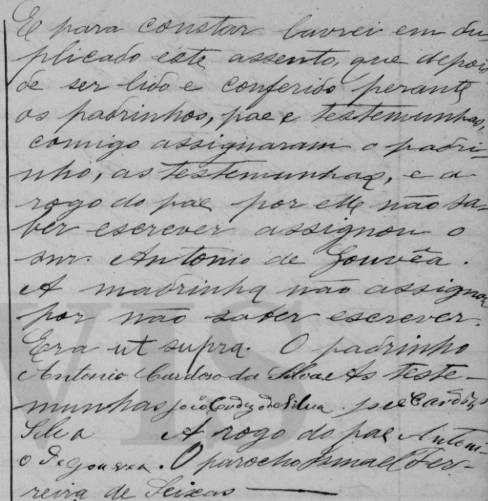 E para constar lavrei em du-
plicado este assento, que depois
de ser lido e conferido perante
os padrinhos, pae e testemunhas,
comigo assignaram o padri-
nho, as testemunhas, e a
rogo do pae por elle não sa-
ber escrever assignou o
snr. Antonio de Gouvêa.
A madrinha não assignou
por não saber escrever.
Era ut supra. O padrinho
Antonio Cardoso da Silva As teste-
munhas João Cardozo da Silva. José Cardozo
Silva A rogo do pae Antoni-
o De gouvea. O parocho Ismael Fer-
reira de Seixas